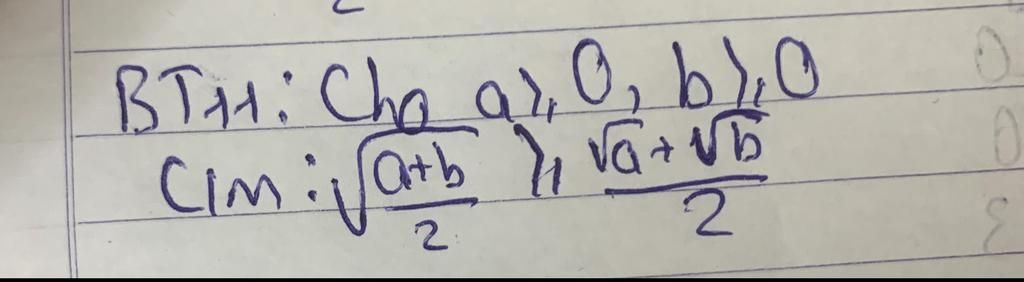 BT11: Cho a ≥ 0, b ≥ 0
C/m: √(a+b)/2 ≥ (√a + √b)/2